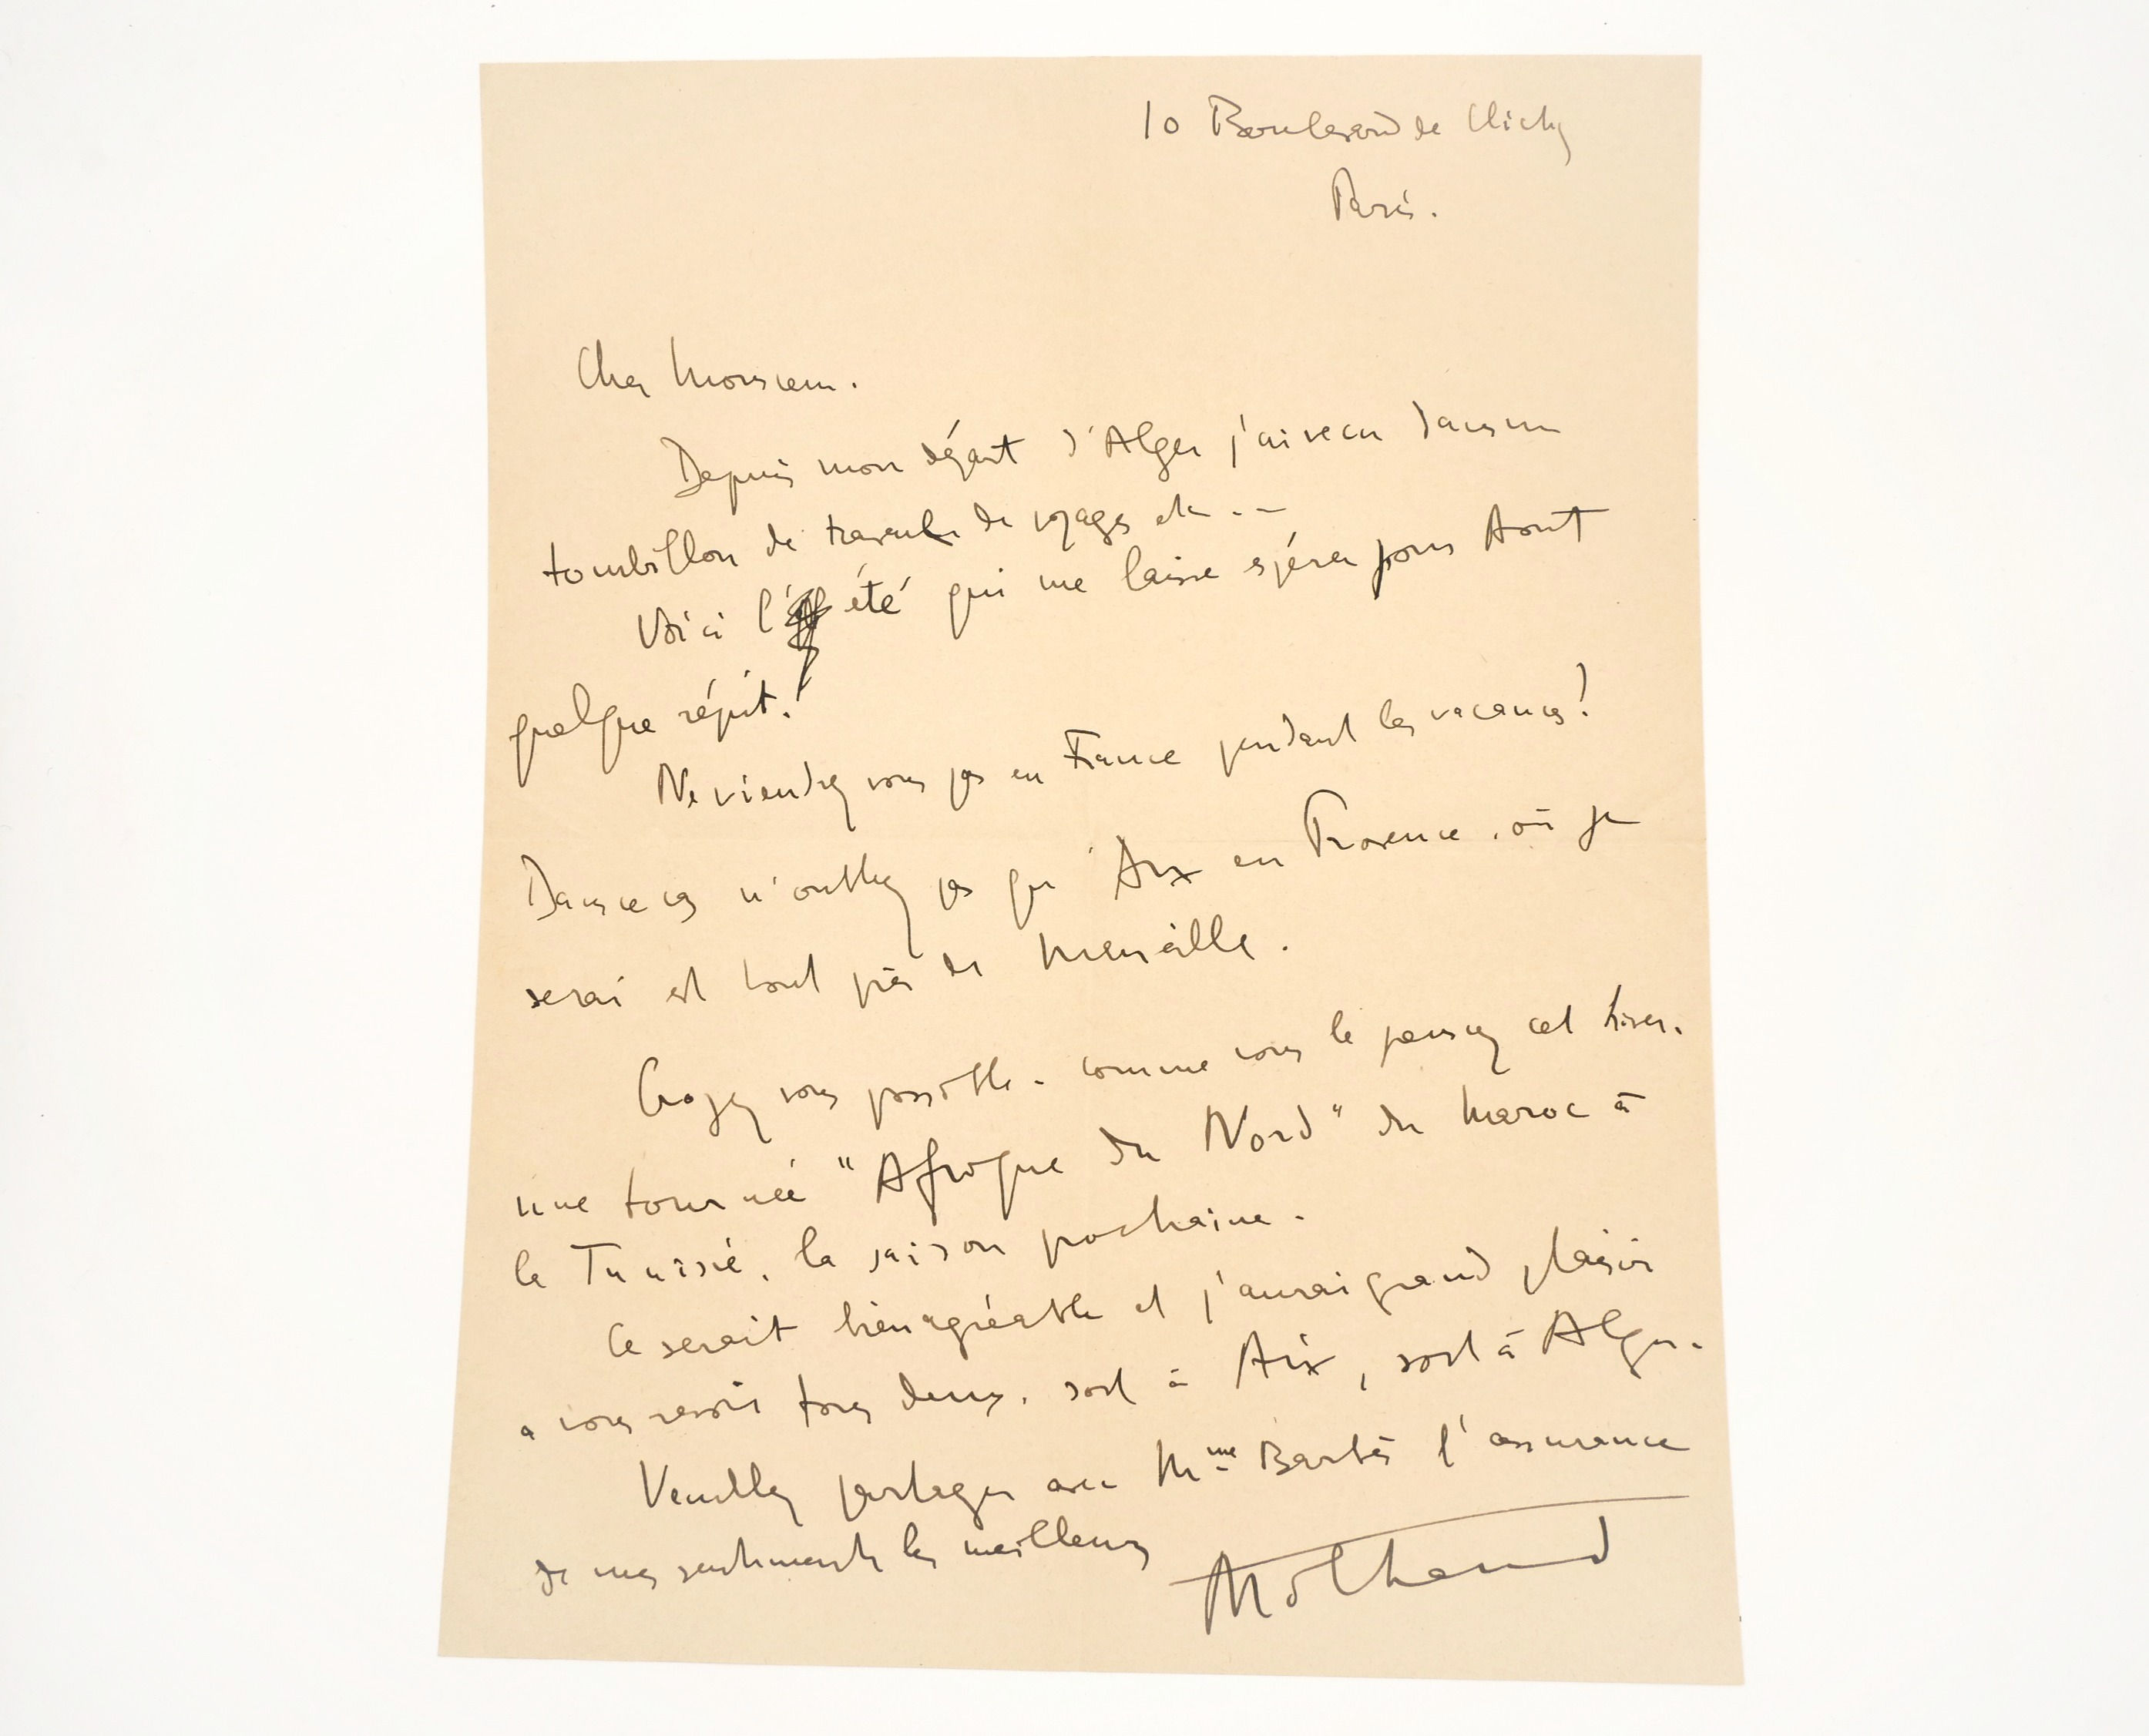 10 Boulevard de Clichy
Paris.
Cher Monsieur.
Depuis mon départ d'Alger j'ai vécu dans un
tourbillon de travail de voyages etc...
Voici l' été qui me laisse espérer pour Aout
quelque répit!
Ne viendrez vous pas en France pendant les vacances?
Dans ce cas n'oubliez pas qu'Aix en Provence, où je
serai est tout près de Marseille.
Croyez vous possible - comme vous le pensiez cet hiver.
une tournée "Afrique du Nord" du Maroc à
la Tunisie, la saison prochaine.
Ce serait bien agréable et j'aurai grand plaisir
à vous revoir tous deux, soit à Aix, soit à Alger.
Veuillez partager avec Mme Barbès l'assurance
de mes sentiments les meilleurs
Milhaud